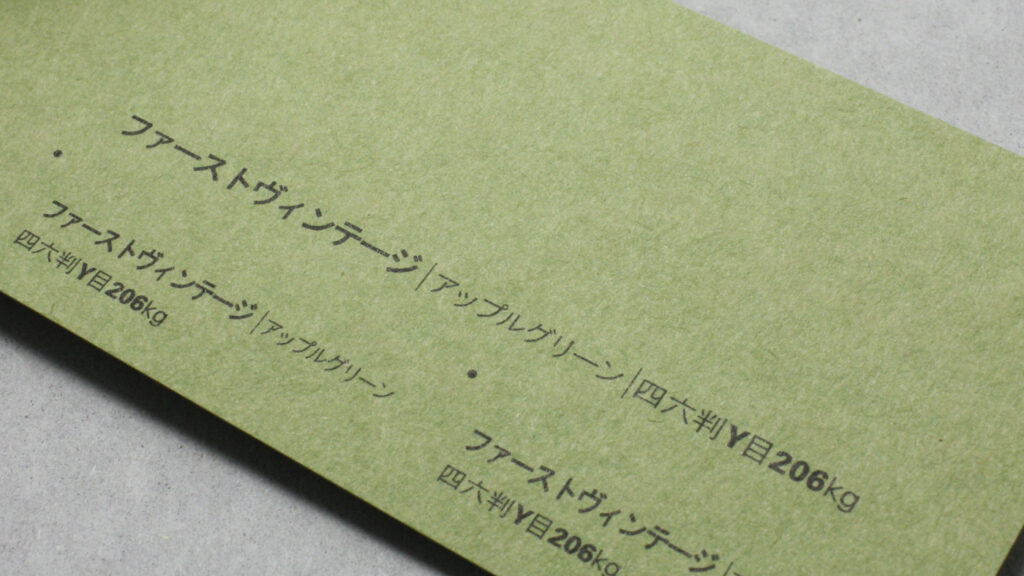 ファーストヴィンテージ|アップルグリーン|四六判Y目206kg
ファーストヴィンテージ|アップルグリーン
四六判Y目206kg
ファーストヴィンテージ|
四六判Y目206kg